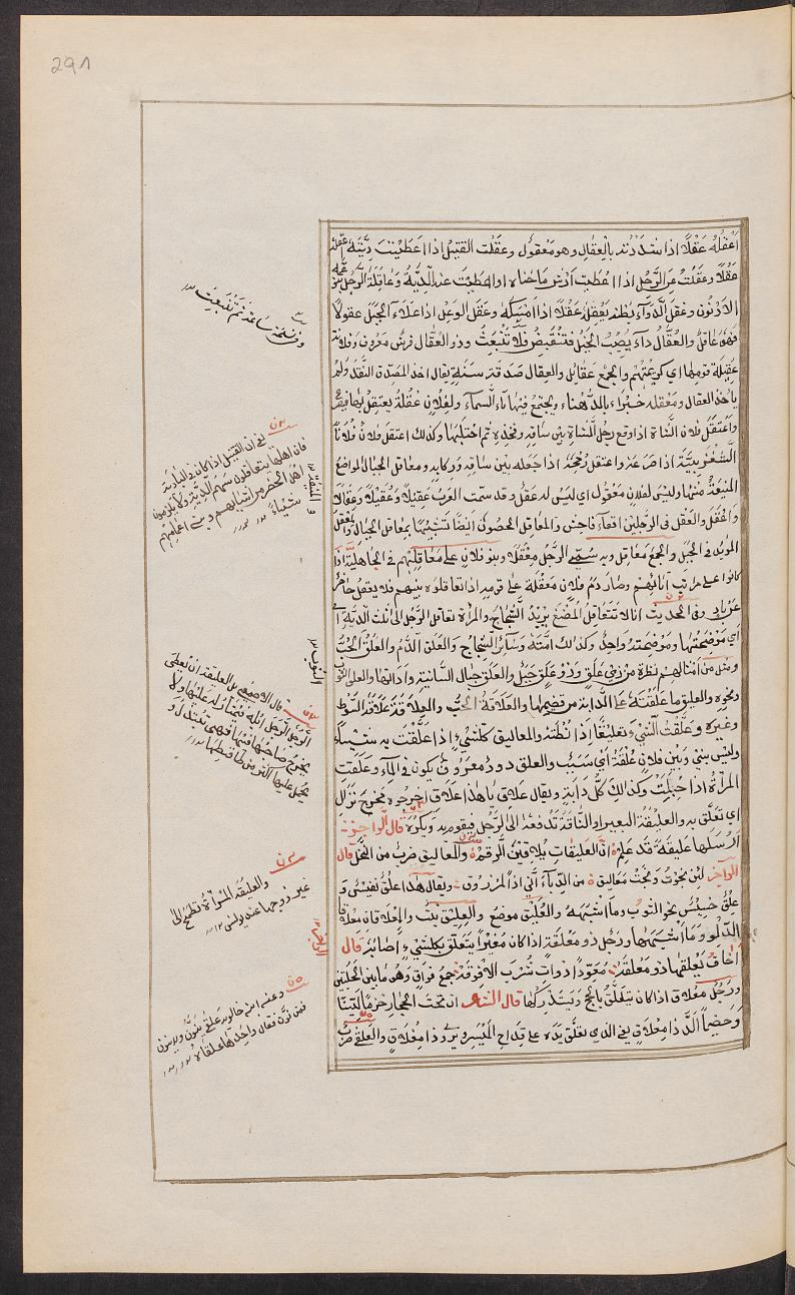 291
أعقله عقلا اذا شددته بالعقال وهو معقول وعقلت القتيل اذا اعطيت ديته
عقلا وعقلت عن الرجل اذا اعطيت ارش ما جناه او اعطيت عنه الدية وعاقلة الرجل بنو عمه
الادنون وعقل الدواء بطنه يعقله عقلا اذا امسكه وعقل الوعل اذا علا الجبل عقولا
فهو عاقل والعقال داء يصيب الخيل فتنقبض فلا تنبعث وذو العقال فرس معروف وفلانة
عقيلة قومها اي كريمتهم والجمع عقائل والعقال صدقة سنة يقال اخذ المصدق النقد ولم
ياخذ العقال ومعقلة خبراء بالدهناء ويجتمع فيها ماء السماء ولفلان عقلة يعتقل بها
واعتقل فلان الشاة اذا وقع رجل الشاة بين ساقه وفخذه ثم احتلبها وكذلك اعتقل فلان فلانا
الشغزبية اذا صرعه واعتقل رمحه اذا جعله بين ساقه وركابه ومعاقل الجبال المواضع
المنيعة منها وليس لفلان معقول اي ليس له عقل وقد سمت العرب عقيلا وعقيلا وعقالا
والعقل في الرجلين فاحش والمعاقل الحصون ايضا تشبيها بمعاقل الجبال
في الجبل والجمع معاقل وبه سمي الرجل معقلا وبنو فلان على معاقلهم في الجاهلية اذا
كانوا على مراتب آبائهم وصار دم فلان معقلة على قومه اذا تعاقلوه بينهم فلا يعقل حاضر
عن باد وفي الحديث انا لا نتعاقل المضغ يريد الشجاج والمرأة تعاقل الرجل الى ثلث الدية
اي موضحتها وموضحته واحد وكذلك آمته وسائر الشجاج والعلق الدم والعلق الحب
ومثل من امثالهم نظرة من ذي علق وذو علق جبل والعلق حبال السانية واداتها والعلق
ونحوه والعليق ما علقته على الدابة من قضيمها والعلاقة الحب والعلاقة علاقة السوط
وغيره وعلقت الشيء تعليقا اذا نطته والمعاليق كل شيء اذا علقت به شيئا
وليس بيني وبين فلان علقة اي سبب والعلق دود معروف يكون في الماء وعلقت
المرأة اذا حبلت وكذلك كل دابة ويقال علاق يا هذا علاق اخرجوه مخرج نزال
اي تعلق به والعليقة البعير او الناقة تدفعه الى الرجل فيقود به ويكره قال الراجز
ارسلها عليقة وقد علم ان العليقات يلاقين الرقم والمعاليق ضرب من النخل قال
الراجز لئن نجوت ونجت معاليق من الدبا اني اذا لمرزوق ويقال هذا اعلق نفيس و
علق خسيس نحو الثوب وما اشبهه والعليق موضع والعليق نبت والمعلاقان معلاقا
الدلو وما اشبهها ورجل ذو معلقة اذا كان مغيرا يتعلق بكل شيء اصابه قال
اخاف يعلقها ذو معلقه معودا ذوات شرب الافوقه جمع فواق وهو ما بين الحلبتين
ورجل معلاق اذا كان يتعلق بالحجج ويستدركها قال الشاعر ان تحت الاحجار حزما لينا
وخصيما الد ذا معلاق يعني الذي تعلق يده على قداح الميسر ويروى ذا مغلاق والعلقى ضرب
يعني ان القتيل اذا كان في البادية
فان اهلها يتعاقلون بينهم الدية ولا يلزمون
اهل الحضر من
شيئا
قال الاصمعي بل العليقة ان يعطى
الرجل الرجل ابله فيمتار له عليها ولا
يخرج صاحبها فيها فهي تبتذل و
يحمل عليها اكثر من طاقتها
والعليقة المرأة تطمح الى
غير زوجها
وعند ابن خالويه